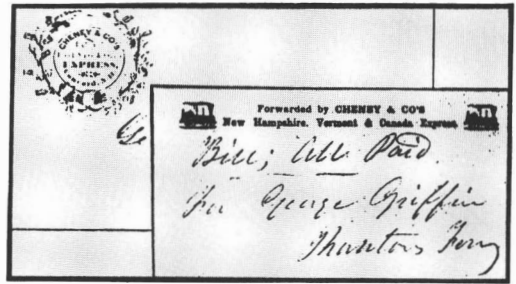 CHENEY & CO'S
EXPRESS
Forwarded by CHENEY & CO'S
New Hampshire, Vermont & Canada Express
Bill; All Paid
For George Griffin
Thantors Ferry